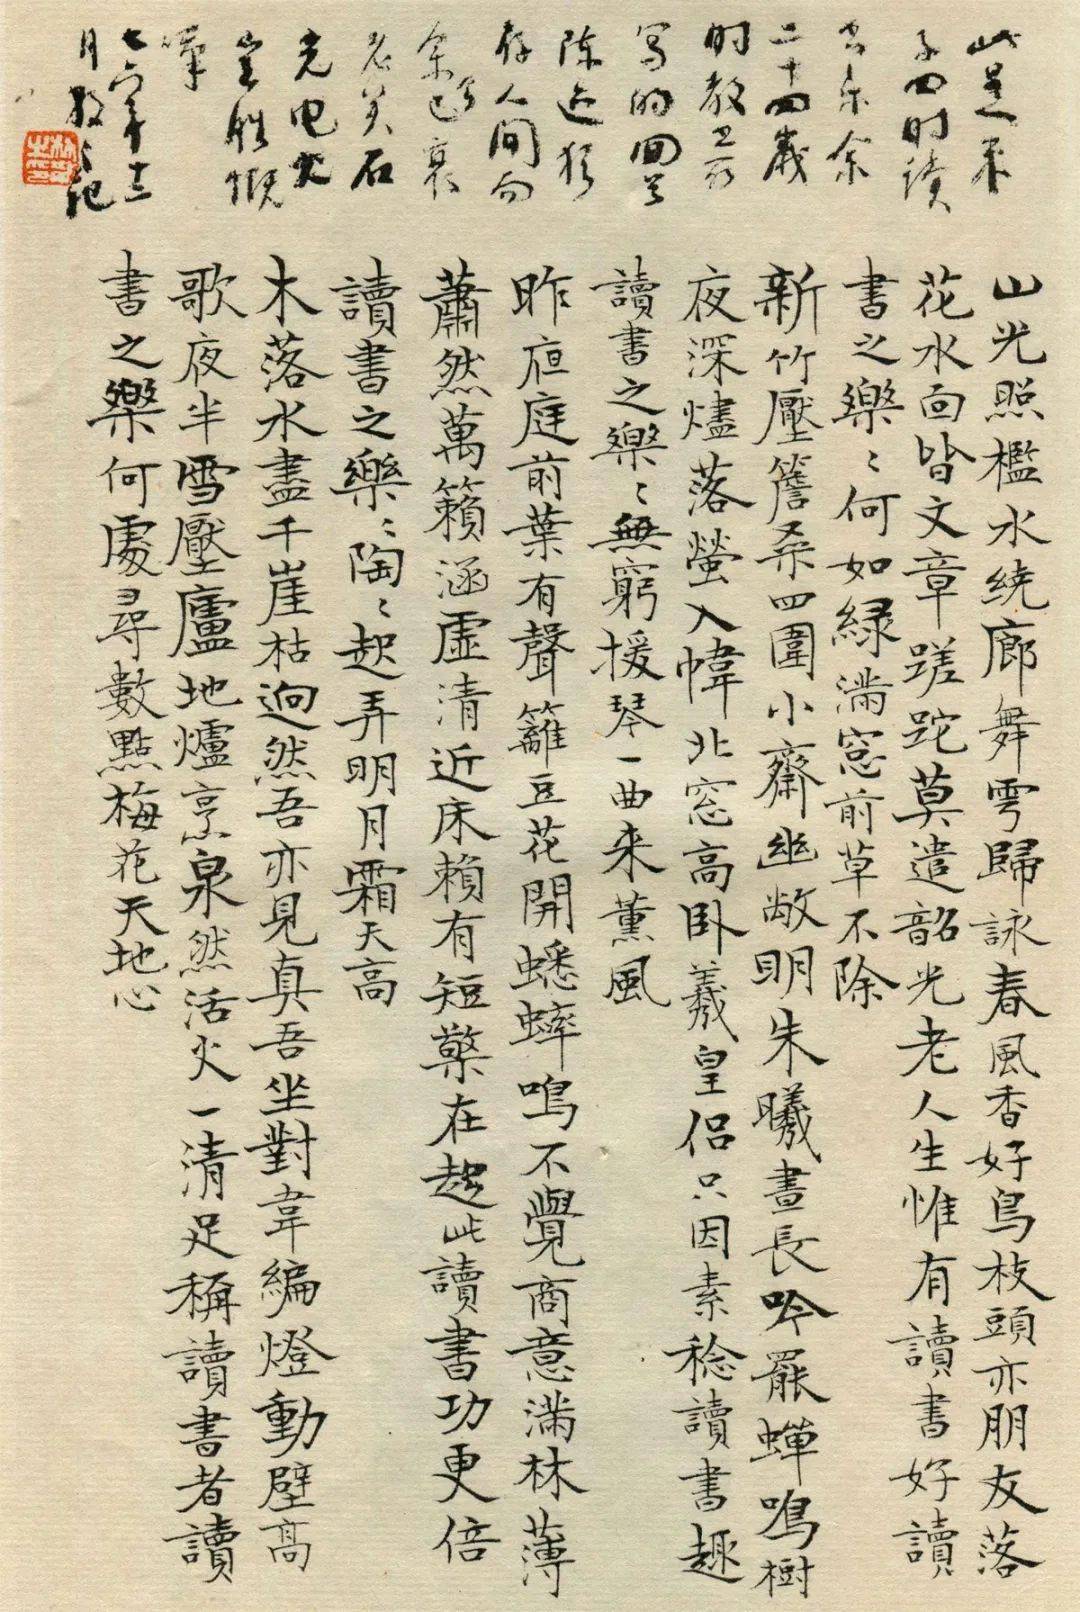 此是朱
子四时读
书乐余
二十四岁
时教卫前
写的回首
陈迹犹
存人间而
余已衰
老矣石
火电光
岂胜慨
叹
七六年十二
月散之记
山光照檻水繞廊舞雩歸詠春風香好鳥枝頭亦朋友落
花水面皆文章蹉跎莫遣韶光老人生惟有讀書好讀
書之樂〻何如綠滿窓前草不除
新竹壓簷桑四圍小齋幽敞明朱曦晝長吟罷蟬鳴樹
夜深燼落螢入幃北窓高臥羲皇侶只因素稔讀書趣
讀書之樂〻無窮援琴一曲来薰風
昨夜庭前葉有聲籬豆花開蟋蟀鳴不覺商意滿林薄
蕭然萬籟涵虛清近床賴有短檠在起此讀書功更倍
讀書之樂〻陶〻起弄明月霜天高
木落水盡千崖枯迥然吾亦見真吾坐對韋編燈動壁高
歌夜半雪壓廬地爐烹泉然活火一清足稱讀書者讀
書之樂何處尋數點梅花天地心